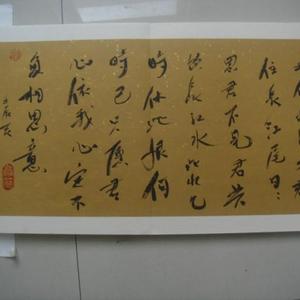 住長江尾日日
思君不見君共
飲長江水此水几
時休此恨何
時已只願君
心似我心定不
負相思意